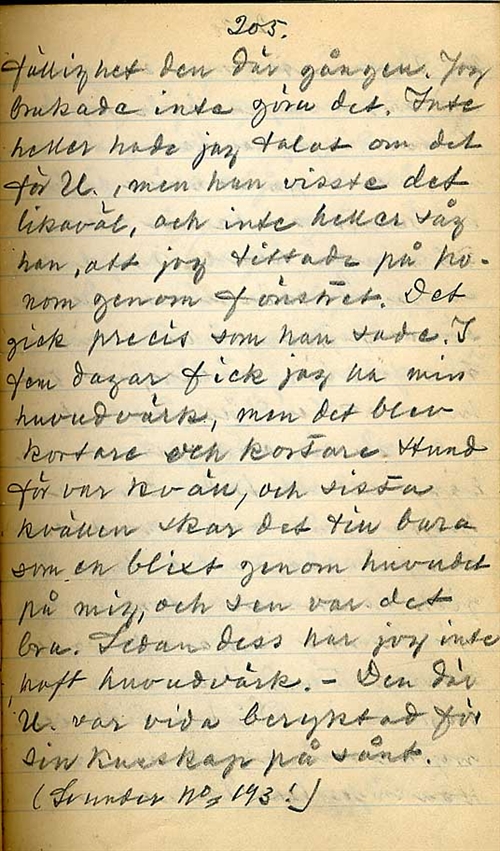 205.
fällighet den där gången. Jag
brukade inte göra det. Inte
heller hade jag talat om det
för U., men han visste det
likaväl, och inte heller såg
han, att jag tittade på ho-
nom genom fönstret. Det
gick precis som han sade. I
fem dagar fick jag ha min
huvudvärk, men det blev
kortare och kortare stund
för var kväll, och sista
kvällen skar det till bara
som en blixt genom huvudet
på mig, och sen var det
bra. Sedan dess har jag inte
haft huvudvärk. – Den där
U. var vida beryktad för
sin kunskap på sånt.
(Se under No 193!)